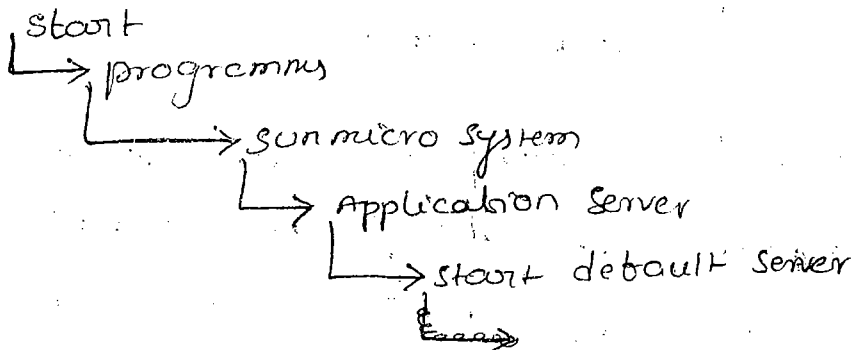 Start
programms
sun micro system
Application Server
Start default server